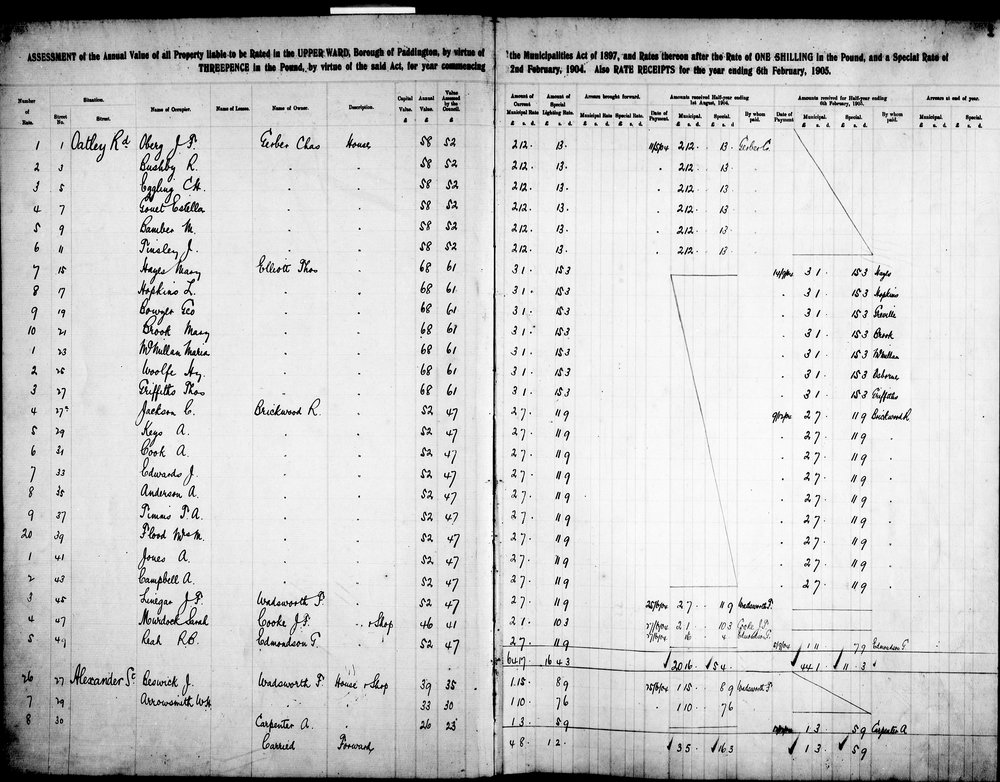 ASSESSMENT of the Annual Value of all Property liable to be Rated in the UPPER WARD, Borough of Paddington, by virtue of the Municipalities Act of 1897, and Rates thereon after the Rate of ONE SHILLING in the Pound, and a Special Rate of
THREEPENCE in the Pound, by virtue of the said Act, for year commencing 2nd February, 1904. Also RATE RECEIPTS for the year ending 6th February, 1905.
Number of Rate. Situation. Street No. Street. Name of Occupier. Name of Lessee. Name of Owner. Description. Capital Value. £ Annual Value. £ Value Assessed by the Council. £ Amount of Current Municipal Rate £ s. d. Amount of Special Lighting Rate. £ s. d. Arrears brought forward. Municipal Rate Special Rate. Date of Payment. Amounts received for Half-year ending 1st August, 1904. Municipal. £ s. d. Special. £ s. d. By whom paid. Date of Payment. Amounts received for Half-year ending 6th February, 1905. Municipal. £ s. d. Special. £ s. d. By whom paid Arrears at end of year. Municipal. Special.
1 1 Oatley Rd Oberg J F Gerber Chas House 58 52 2 12 . 13 . 11/5/04 2 12 . 13 . Gerber C
2 3 Bushby R. . . 58 52 2 12 . 13 . . 2 12 . 13 .
3 5 Eggling C.H. . . 58 52 2 12 . 13 . . 2 12 . 13 .
4 7 Gouet Estella . . 58 52 2 12 . 13 . . 2 12 . 13 .
5 9 Bamber M. . . 58 52 2 12 . 13 . . 2 12 . 13 .
6 11 Tinsley J. . . 58 52 2 12 . 13 . . 2 12 . 13 .
7 15 Hayes Mary Elliott Thos . 68 61 3 1 . 15 3 3 1 . 15 3 Hayes
8 7 Hopkins L. . . 68 61 3 1 . 15 3 . 3 1 . 15 3 Hopkins
9 19 Bowyer Geo . . 68 61 3 1 . 15 3 . 3 1 . 15 3 Greville
10 21 Brook Mary . . 68 61 3 1 . 15 3 . 3 1 . 15 3 Brook
1 23 McMullan Maria . . 68 61 3 1 . 15 3 . 3 1 . 15 3 McMullan
2 25 Woolfe Hy. . . 68 61 3 1 . 15 3 . 3 1 . 15 3 Osborne
3 27 Griffiths Thos . . 68 61 3 1 . 15 3 . 3 1 . 15 3 Griffiths
4 27a Jackson C. Brickwood R. . 52 47 2 7 . 11 9 2 7 . 11 9 Brickwood R
5 29 Keys A. . . 52 47 2 7 . 11 9 . 2 7 . 11 9
6 31 Cook A. . . 52 47 2 7 . 11 9 . 2 7 . 11 9
7 33 Edwards J. . . 52 47 2 7 . 11 9 . 2 7 . 11 9
8 35 Anderson A. . . 52 47 2 7 . 11 9 . 2 7 . 11 9
9 37 Timms T A. . . 52 47 2 7 . 11 9 . 2 7 . 11 9
20 39 Flood Mrs M. . . 52 47 2 7 . 11 9 . 2 7 . 11 9
1 41 Jones A. . . 52 47 2 7 . 11 9 . 2 7 . 11 9
2 43 Campbell A. . . 52 47 2 7 . 11 9 . 2 7 . 11 9
3 45 Linegar J F. Wadsworth F. . 52 47 2 7 . 11 9 25/6/04 2 7 . 11 9 Wadsworth F.
4 47 Murdock Sarah Cooke J.F. . & Shop 46 41 2 1 . 10 3 2 1 . 10 3 Cooke J.F.
5 49 Reah R.C. Edmondson G. . 52 47 2 7 . 11 9 16 4 Edmondson G. 1 11 . 7 9 Edmondson G.
64 17 16 4 3 20 16 . 5 4 . 44 1 . 11 . 3
26 27 Alexander St Beswick J. Wadsworth F. House & Shop 39 35 1 15 . 8 9 25/6/04 1 15 . 8 9 Wadsworth F.
7 29 Arrowsmith W.H . . 33 30 1 10 . 7 6 . 1 10 . 7 6
8 30 Carpenter A. . 26 23 1 3 . 5 9 1 3 . 5 9 Carpenter A
Carried Forward 4 8 . 1 2 . 3 5 . 16 3 1 3 . 5 9